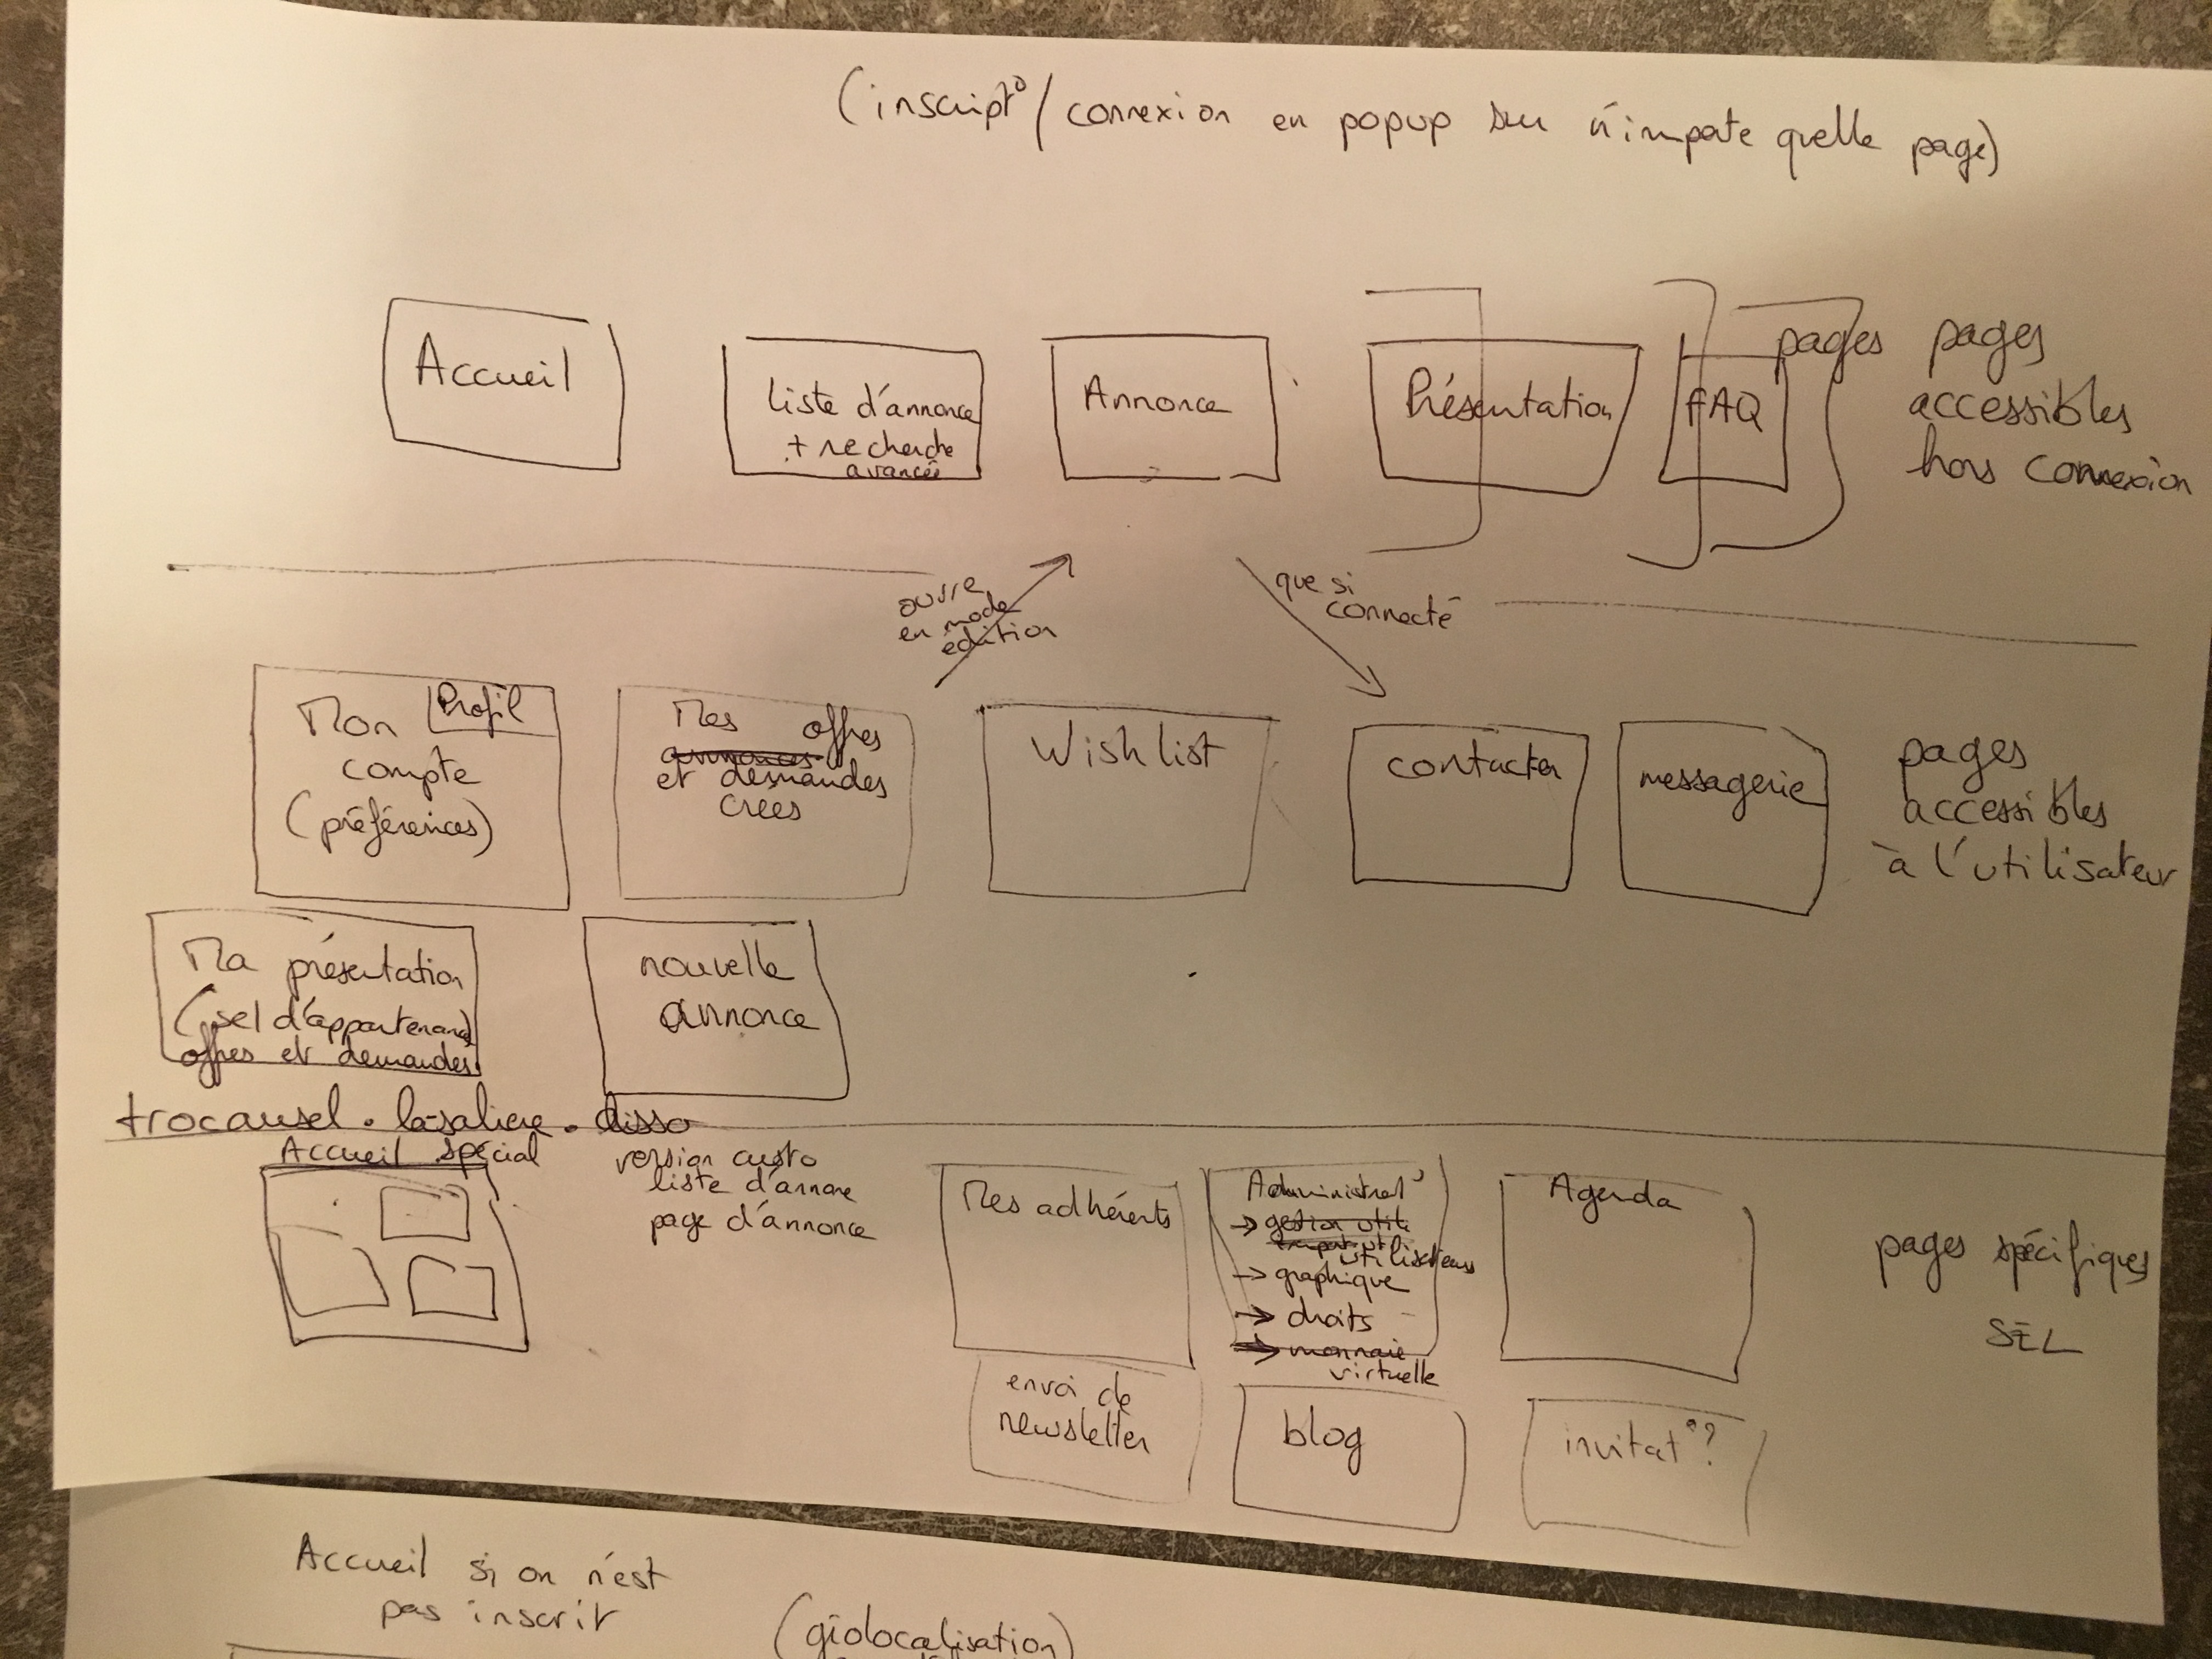 (inscript°/connexion en popup sur n'importe quelle page)
Accueil
liste d'annonce
+ recherche
avancée
Annonce
Présentation
FAQ
pages
pages
accessibles
hors connexion
ouvre
en mode
édition
que si
connecté
Mon
Profil
compte
(préférences)
Mes offres
annonces
et demandes
crees
Wish list
contacter
messagerie
pages
accessibles
à l'utilisateur
Ma présentation
(sel d'appartenance
offres et demandes
nouvelle
annonce
trocausel . la-saliere .
Accueil spécial
version custo
liste d'annonce
page d'annonce
Mes adhérents
Administrat°
→ gestion utili
utilisateurs
→ graphique
→ droits
→ monnaie
virtuelle
Agenda
pages spécifiques
SEL
envoi de
newsletter
blog
invitat°?
Accueil si on n'est
pas inscrit
(géolocalisation)